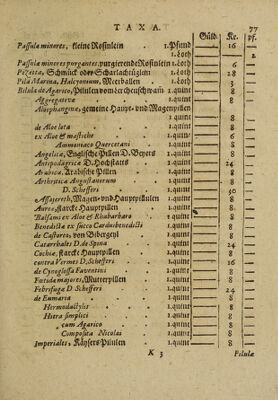 TAXA. 77
Güld. Kr. pf.
Passulæ minores, kleine Rosinlein . 1. Pfund — 16 —
1. Loth — — 1
Passulæ minores purgantes, purgierende Rosinlein 1. Loth — 6 —
Pezetta, Schmück oder Scharlachtüzlein 1. Loth — 28 —
Pila Marina, Halcyonum, Meerballen . 1. Loth — 3 —
Pilulæ de Agarico, Pillulen vom Lerchenschwam 1. quint — 8 —
Aggregativæ . . . 1. quint — 8 —
Alœphanginæ, gemeine Haupt- und Magenpillen
1. quint — 8 —
de Aloe lota . . . 1. quint — 8 —
ex Aloe & mastiche . . 1. quint — 8 —
Ammoniaco Quercetani 1. quint — 8 —
Angelicæ, Englische Pillen D. Beyers 1. quint — 8 —
Antipodagricæ D. Hochstatt . 1. quint — 24 —
Arabicæ, Arabische Pillen . 1. quint — 8 —
Arthriticæ Augustanorum . 1. quint — 8 —
D. Schefferi . . 1. quint — 30 —
Assajereth, Magen- und Hauptpillulen 1. quint — 8 —
Aureæ, starcke Hauptpillen . 1. quint — 8 —
Balsami ex Aloe & Rhabarbaro 1. quint — 8 —
Benedictæ ex succo Carduibenedicti 1. quint — 8 —
de Castoreo, von Bibergeyl . 1. quint — 8 —
Catarrhales D. de Spina . 1. quint — 24 —
Cochiæ, starcke Hauptpillen . 1. quint — 8 —
contra Vermes D. Schefferi . 1. quint — 16 —
de Cynoglossa Faventini . 1. quint — 8 —
Fœtidæ majores, Mutterpillen . 1. quint — 8 —
Febrifugæ D. Schefferi . 1. quint — 24 —
de Fumaria . . . 1. quint — 8 —
Hermodactylis . . 1. quint — 8 —
Hiera simplici . . 1. quint — 8 —
cum Agarico . . 1. quint — 8 —
Composita Nicolai . 1. quint — 8 —
Imperiales, Käysers Pillulen . 1. quint — 8 —
K 3 Pilulæ